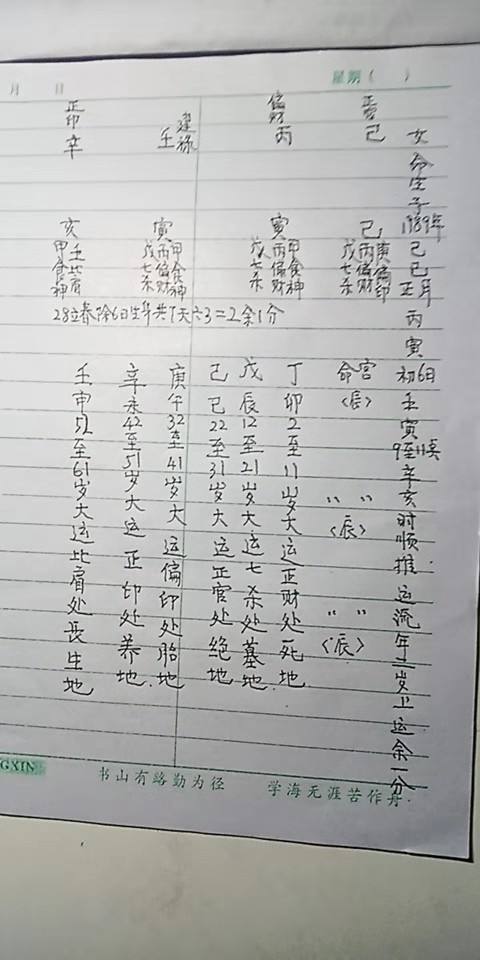 月 日 星期( )
女命生于1989年己巳正月丙寅初6日壬寅9至11点辛亥时顺推运流年二岁上运余一分
正官己
偏财丙
建禄壬
正印辛
巳
庚偏印
丙偏财
戊七杀
寅
甲食神
丙偏财
戊七杀
寅
甲食神
丙偏财
戊七杀
亥
壬比肩
甲食神
28立春除6日生年共7天六3=2余1分
命宫〈辰〉
〃〃〈辰〉
〃〃〈辰〉
丁卯2至11岁大运正财处死地
戊辰12至21岁大运七杀处墓地.
己巳22至31岁大运正官处绝地
庚午32至41岁大运偏印处胎地
辛未42至51岁大运正印处养地.
壬申52至61岁大运比肩处长生地
GXIN 书山有路勤为径 学海无涯苦作舟.